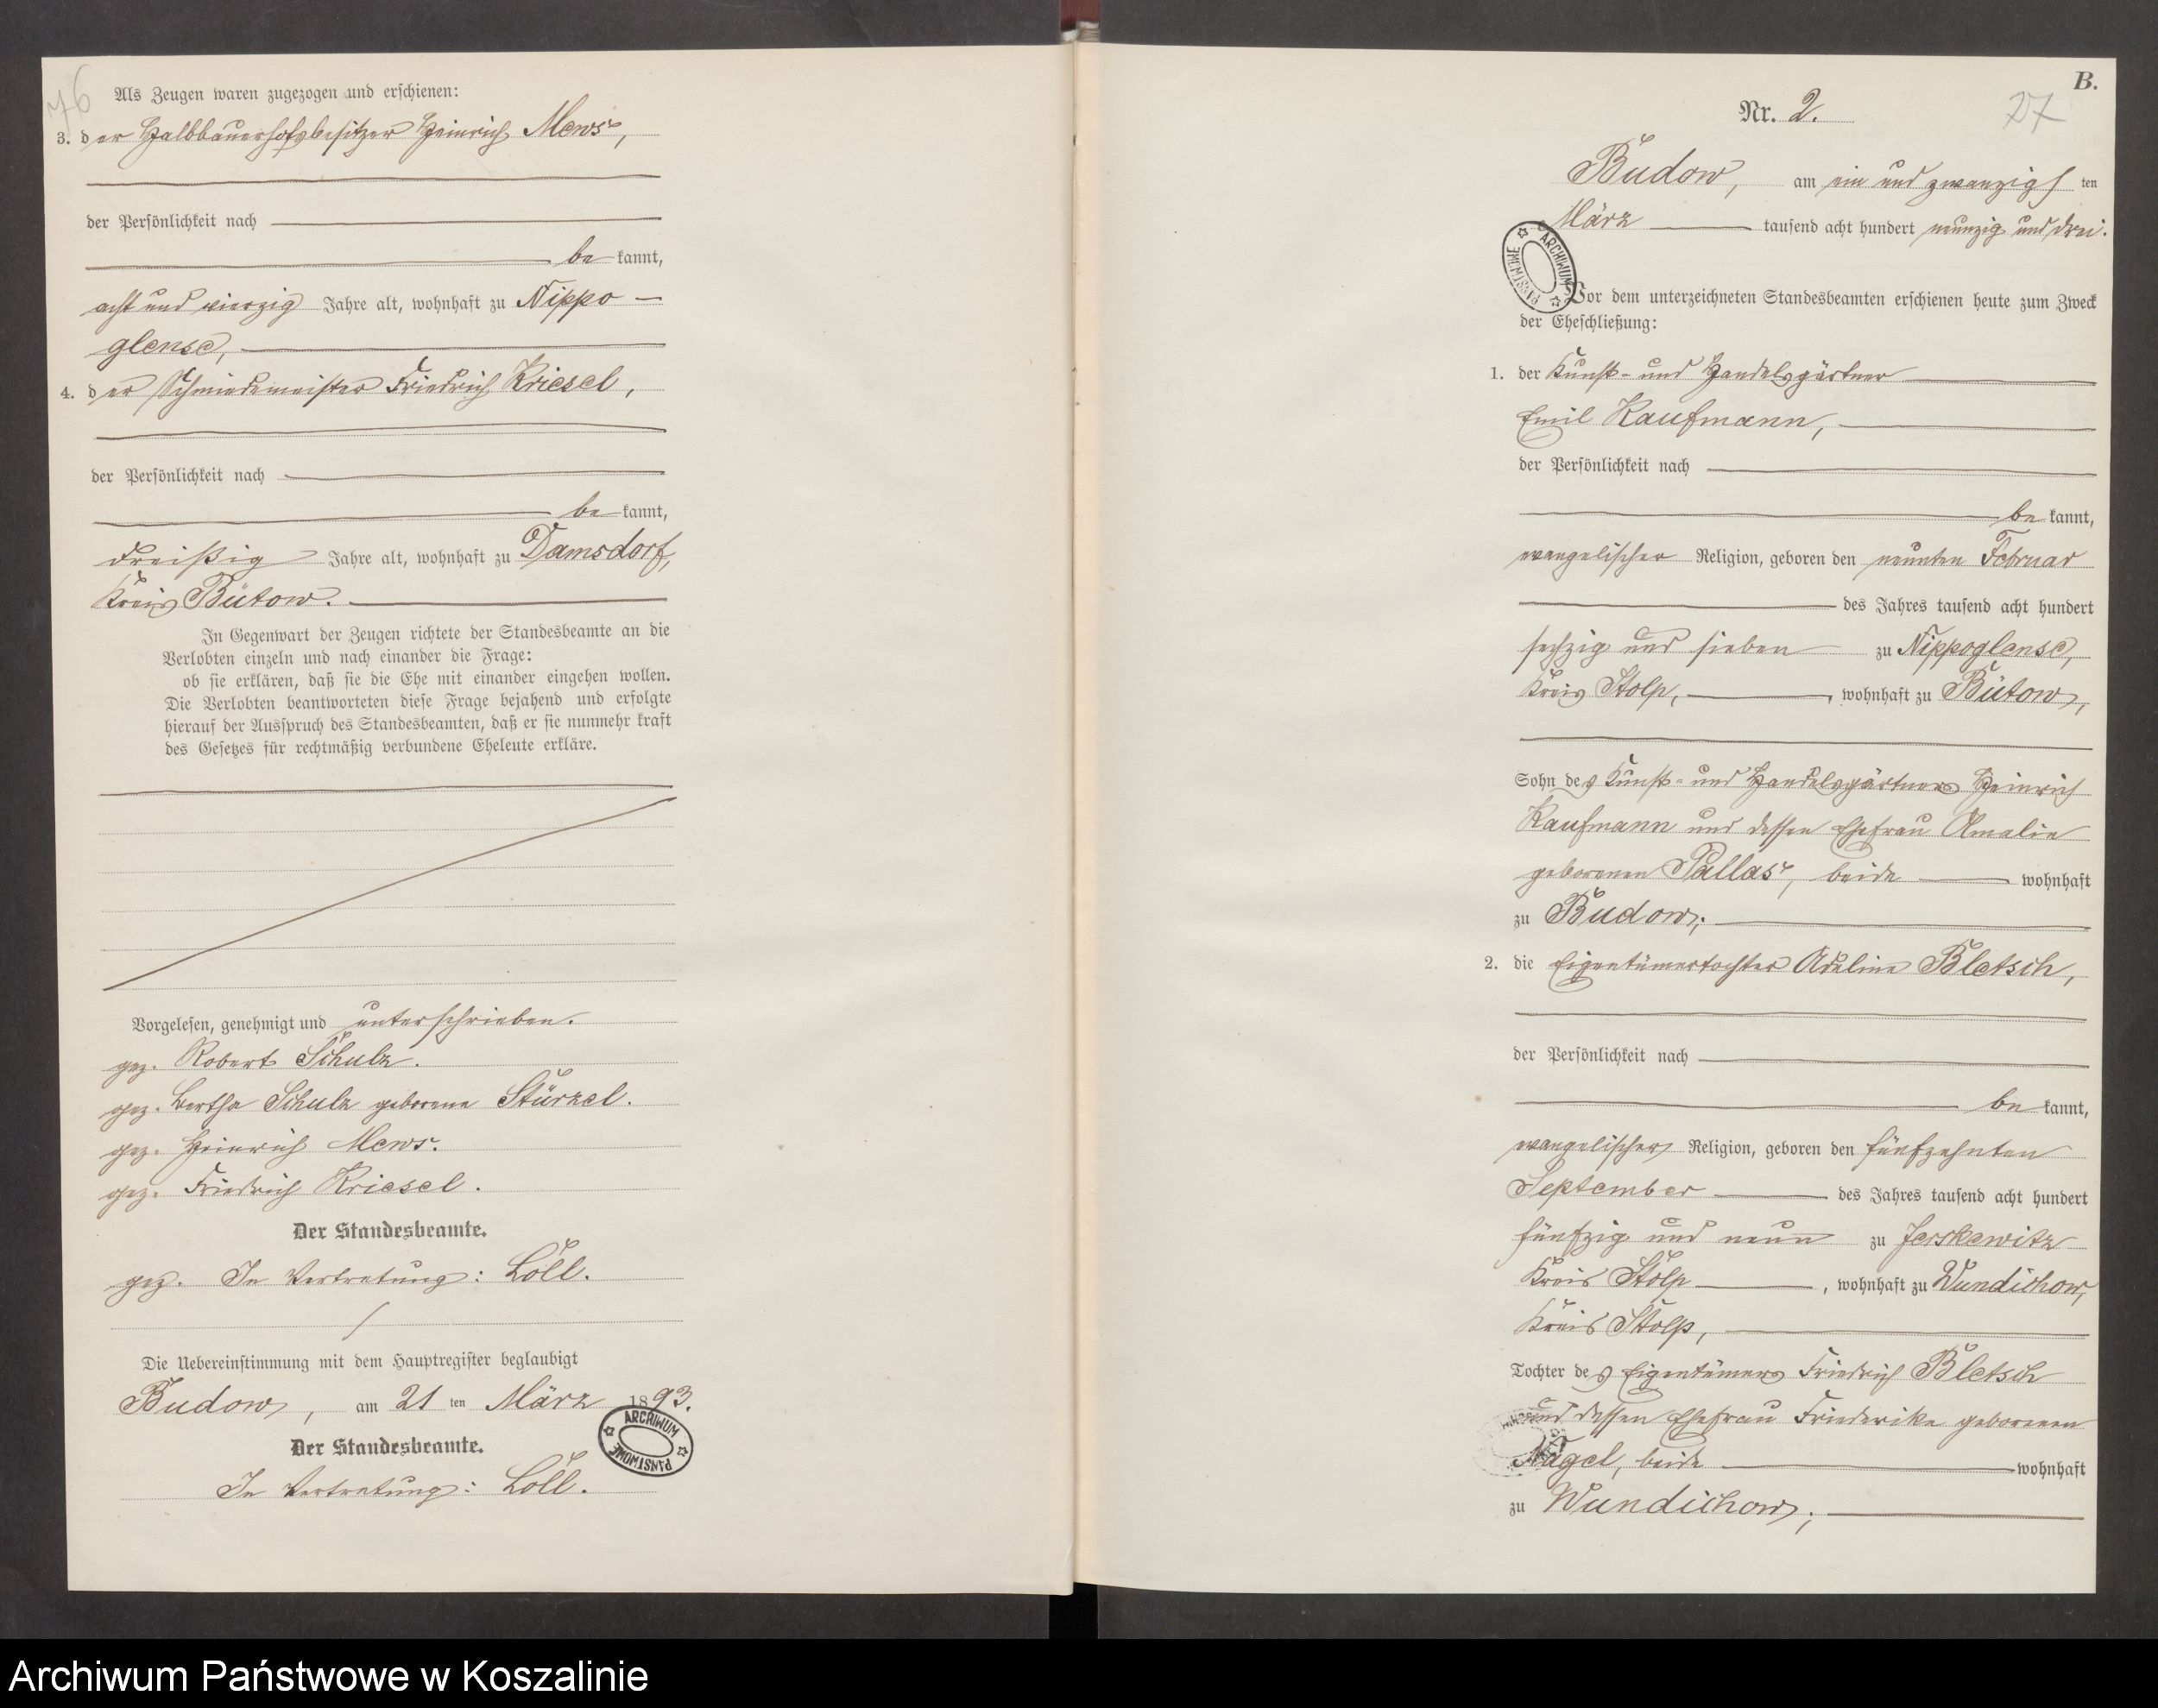 76
Als Zeugen waren zugezogen und erschienen:
3. der Halbbauerhofsbesitzer Heinrich Mews,
der Persönlichkeit nach
be kannt,
acht und vierzig Jahre alt, wohnhaft zu Nippo-
glense,
4. der Schmiedemeister Friedrich Kriesel,
der Persönlichkeit nach
be kannt,
dreißig Jahre alt, wohnhaft zu Damsdorf,
Kreis Bütow.
In Gegenwart der Zeugen richtete der Standesbeamte an die
Verlobten einzeln und nach einander die Frage:
ob sie erklären, daß sie die Ehe mit einander eingehen wollen.
Die Verlobten beantworteten diese Frage bejahend und erfolgte
hierauf der Ausspruch des Standesbeamten, daß er sie nunmehr kraft
des Gesetzes für rechtmäßig verbundene Eheleute erkläre.
Vorgelesen, genehmigt und unterschrieben.
gez. Robert Schulz.
gez. Bertha Schulz geborene Stürzel.
gez. Heinrich Mews.
gez. Friedrich Kriesel.
Der Standesbeamte.
gez. In Vertretung: Löll.
Die Uebereinstimmung mit dem Hauptregister beglaubigt
Budow, am 21 ten März 1893.
ARCHIWUM PAŃSTWOWE
Der Standesbeamte.
In Vertretung: Löll.
B.
Nr. 2.
27
Budow, am ein und zwanzigsten
März tausend acht hundert neunzig und drei.
ARCHIWUM PAŃSTWOWE
Vor dem unterzeichneten Standesbeamten erschienen heute zum Zweck
der Eheschließung:
1. der Kunst- und Handelsgärtner
Emil Kaufmann,
der Persönlichkeit nach
be kannt,
evangelischer Religion, geboren den neunten Februar
des Jahres tausend acht hundert
sechzig und sieben zu Nippoglense,
Kreis Stolp, , wohnhaft zu Bütow,
Sohn des Kunst- und Handelsgärtners Heinrich
Kaufmann und dessen Ehefrau Amalie
geborenen Pallas, beide wohnhaft
zu Budow;
2. die Eigentümertochter Adeline Bletsch,
der Persönlichkeit nach
be kannt,
evangelischer Religion, geboren den fünfzehnten
September des Jahres tausend acht hundert
fünfzig und neun zu Jerskewitz
Kreis Stolp , wohnhaft zu Wundichow,
Kreis Stolp,
Tochter des Eigentümers Friedrich Bletsch
und dessen Ehefrau Friederike geborenen
Nagel, beide wohnhaft
zu Wundichow;
Archiwum Państwowe w Koszalinie